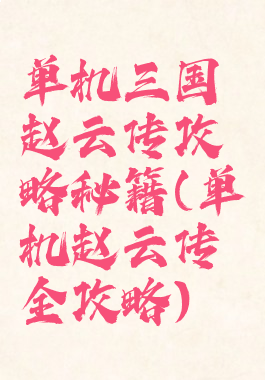 单机三国
赵云传攻
略秘籍(单
机赵云传
全攻略)